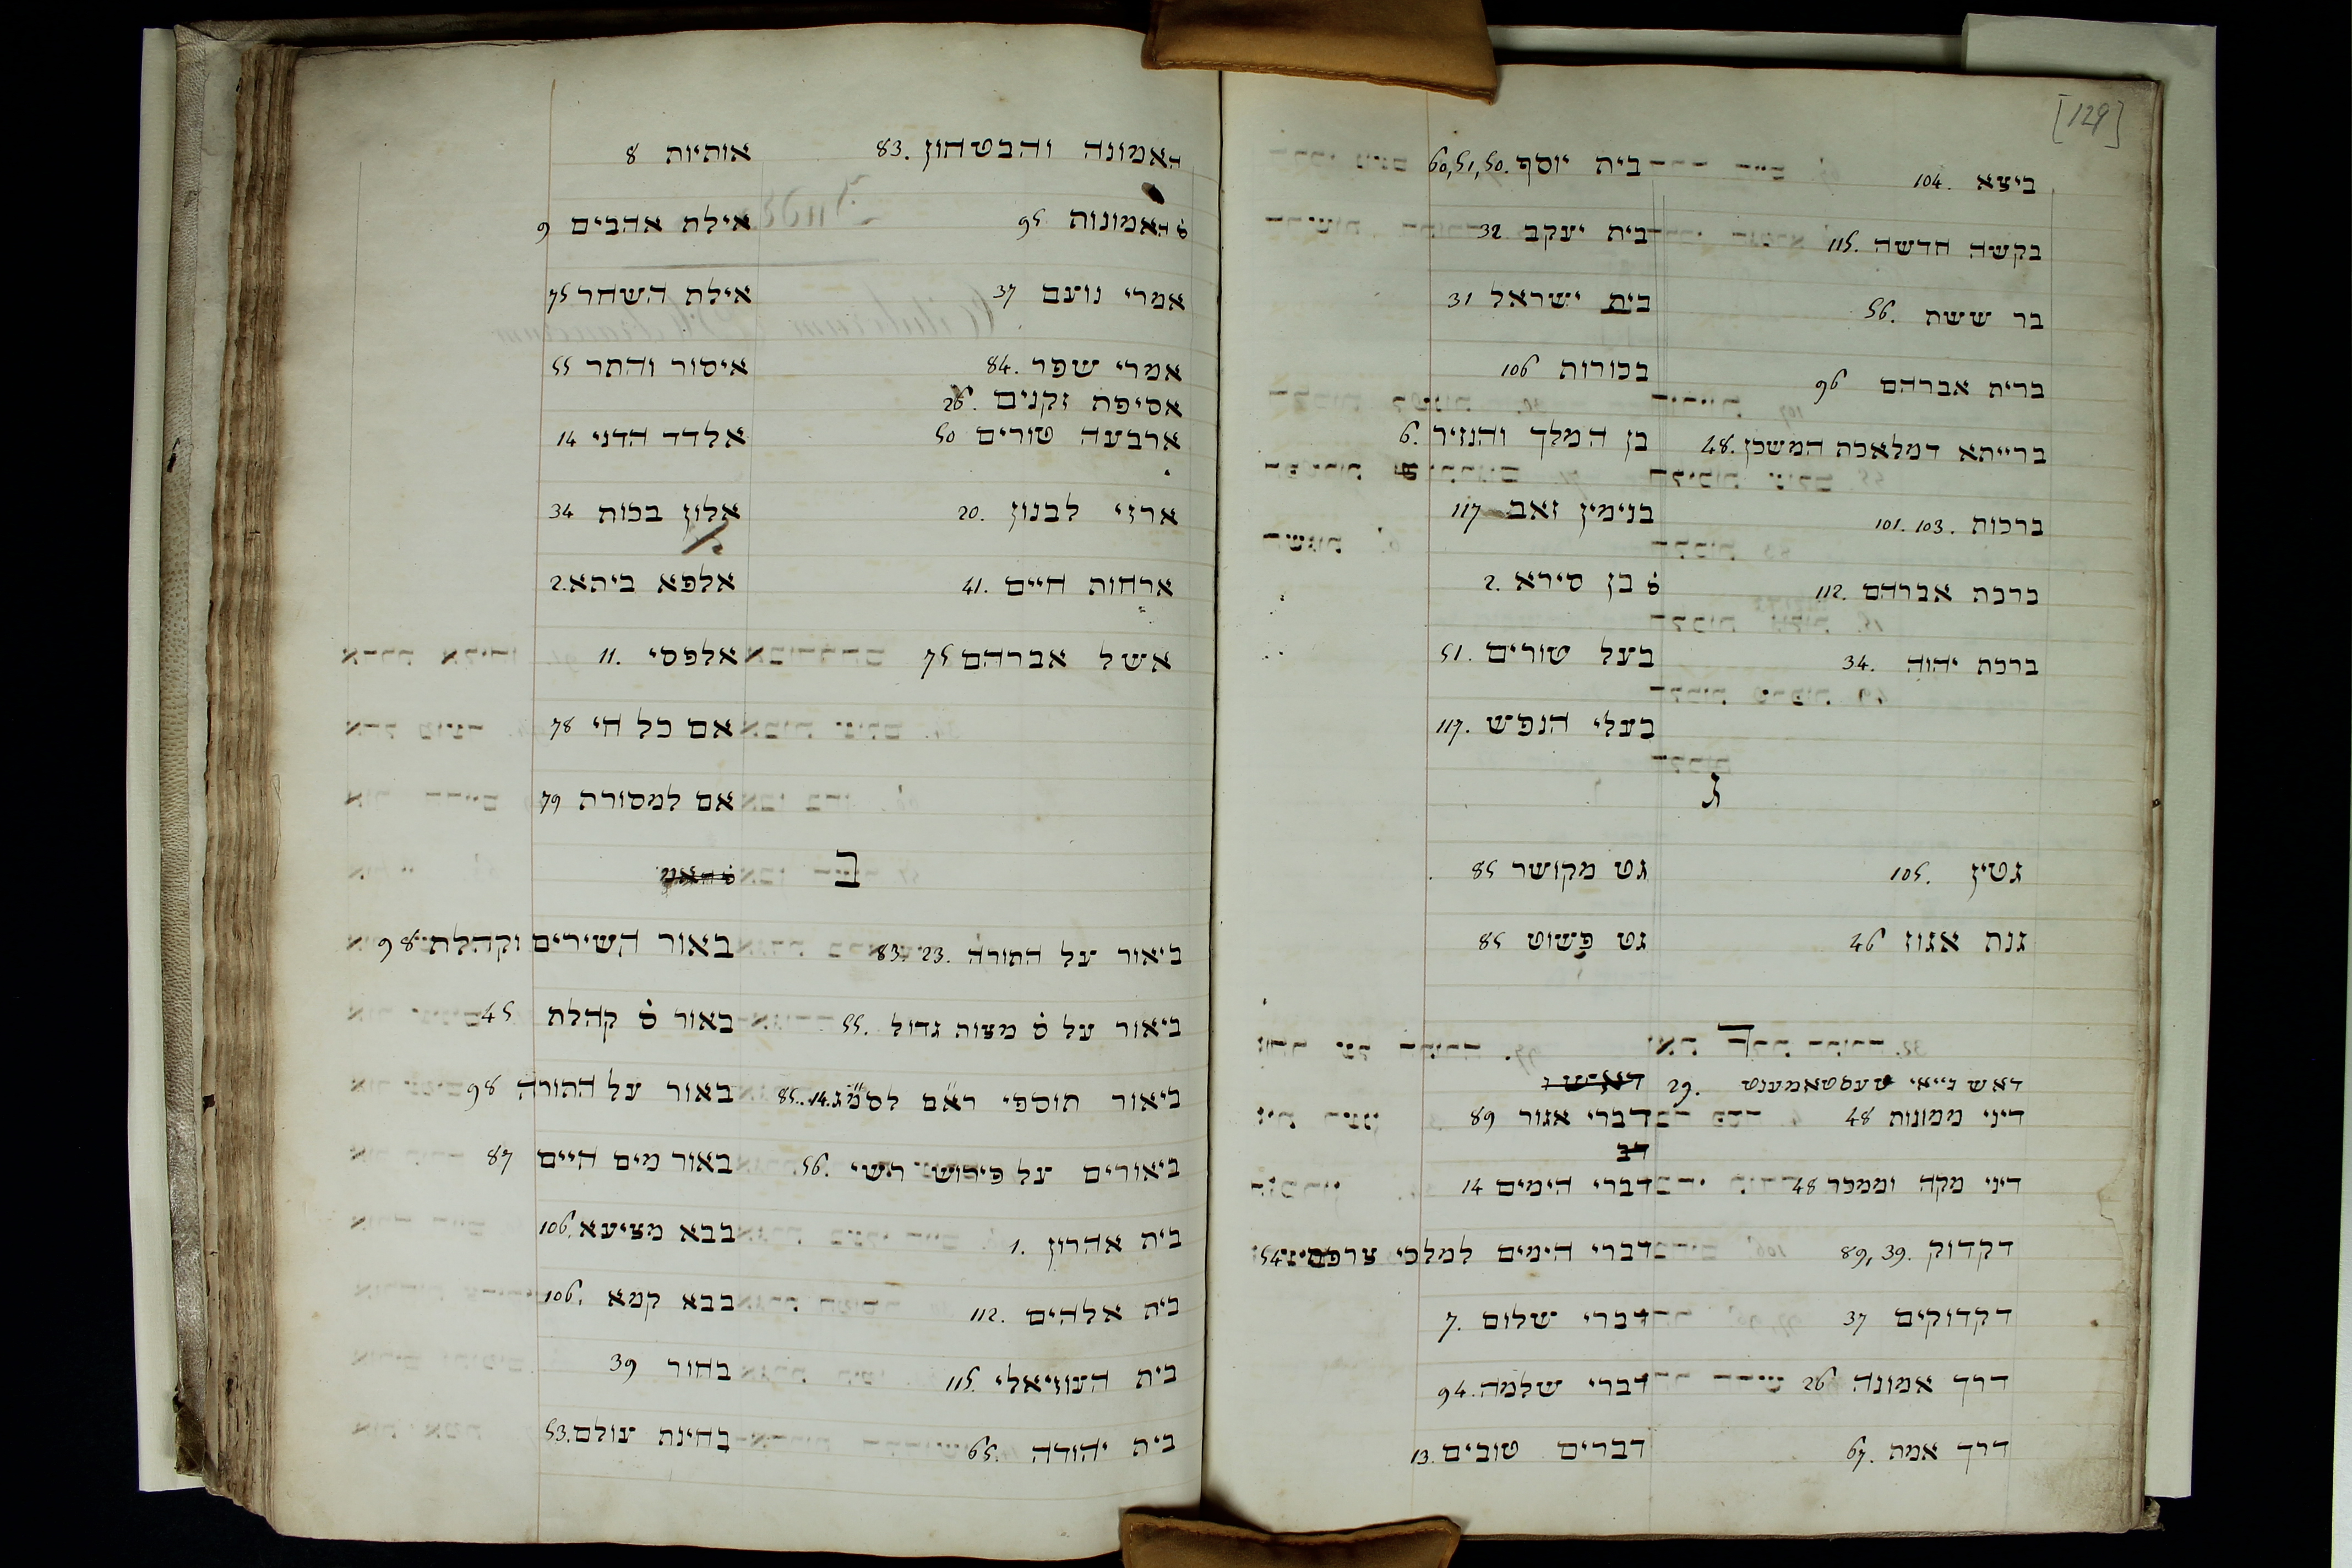 אותיות 8
אילת אהבים 9
אילת השחר 75
איסור והתר 55
אלדד הדני 14
אלון בכות 34
אלפא ביתא. 2
אלפסי 11.
אם כל חי 78
אם למסורת 79
האמונה והבטחון 83.
ס׳ האמונות 95
אמרי נועם 37
אמרי שפר 84.
אסיפת זקנים 26.
ארבעה טורים 50
ארזי לבנון 20.
ארחות חיים 41.
אשל אברהם 75
ב
ס׳ האמ
באור השירים וקהלת 98
באור ס׳ קהלת 45
באור על התורה 98
באור מים חיים 87
בבא מציעא 106.
בבא קמא 106.
בחור 39
בחינת עולם 53.
ביאור על התורה 83. 23.
ביאור על ס׳ מצות גדול 55.
ביאור תוספי רא״ם לסמ״ג 85. 14.
ביאורים על פירוש רשי 56.
בית אהרון 1.
בית אלהים 112.
בית העוזיאלי 115.
בית יהודה 65.
[129]
בית יוסף 60, 51, 50.
בית יעקב 32
בית ישראל 31
בכורות 106
בן המלך והנזיר 6.
בנימין זאב 117
ס׳ בן סירא 2.
בעל טורים 51.
בעלי הנפש 117.
ביצא 104.
בקשה חדשה 115.
בר ששת 56.
ברית אברהם 96
ברייתא דמלאכת המשכן 48.
ברכות 101. 103.
ברכת אברהם 112.
ברכת יהוה 34.
ג
גט מקושר 85
גט פשוט 85
גטין 105.
גנת אגוז 46
ד
דאש נ
דברי אגור 89
דב
דברי הימים 14
דברי הימים למלכי צרפת 54
דברי שלום 7.
דברי שלמה 94.
דברים טובים 13.
דאש נייאי טעסטאמענט 29.
דיני ממונות 48
דיני מקח וממכר 48
דקדוק 89, 39.
דקדוקים 37
דרך אמונה 26
דרך אמת 67.